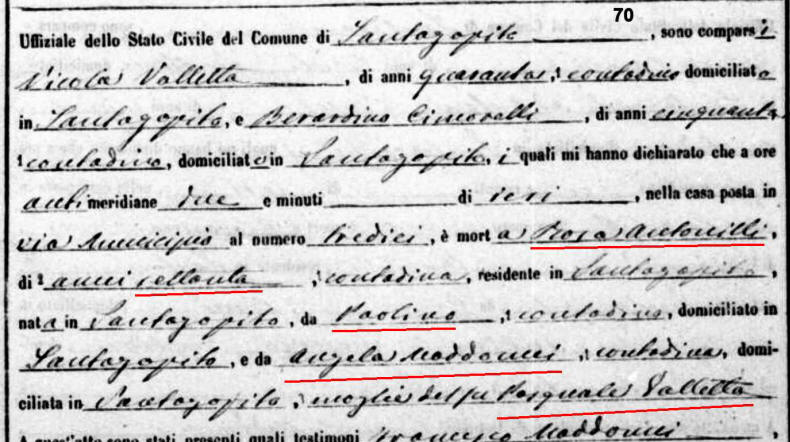 70
Uffiziale dello Stato Civile del Comune di Santagapito, sono comparsi
Nicola Valletta, di anni quaranta, contadino domiciliato
in Santagapito, e Berardino Cimorelli, di anni cinquanta
contadino, domiciliato in Santagapito, i quali mi hanno dichiarato che a ore
antimeridiane due e minuti di ieri, nella casa posta in
via Municipio al numero tredici, è morta Rosa Antonilli,
di anni settanta, contadina, residente in Santagapito,
nata in Santagapito, da Paolino, contadino, domiciliato in
Santagapito, e da Angela Maddonni, contadina, domi-
ciliata in Santagapito, moglie del fu Pasquale Valletta
A quest'atto sono stati presenti quali testimoni Francesco Maddonni,